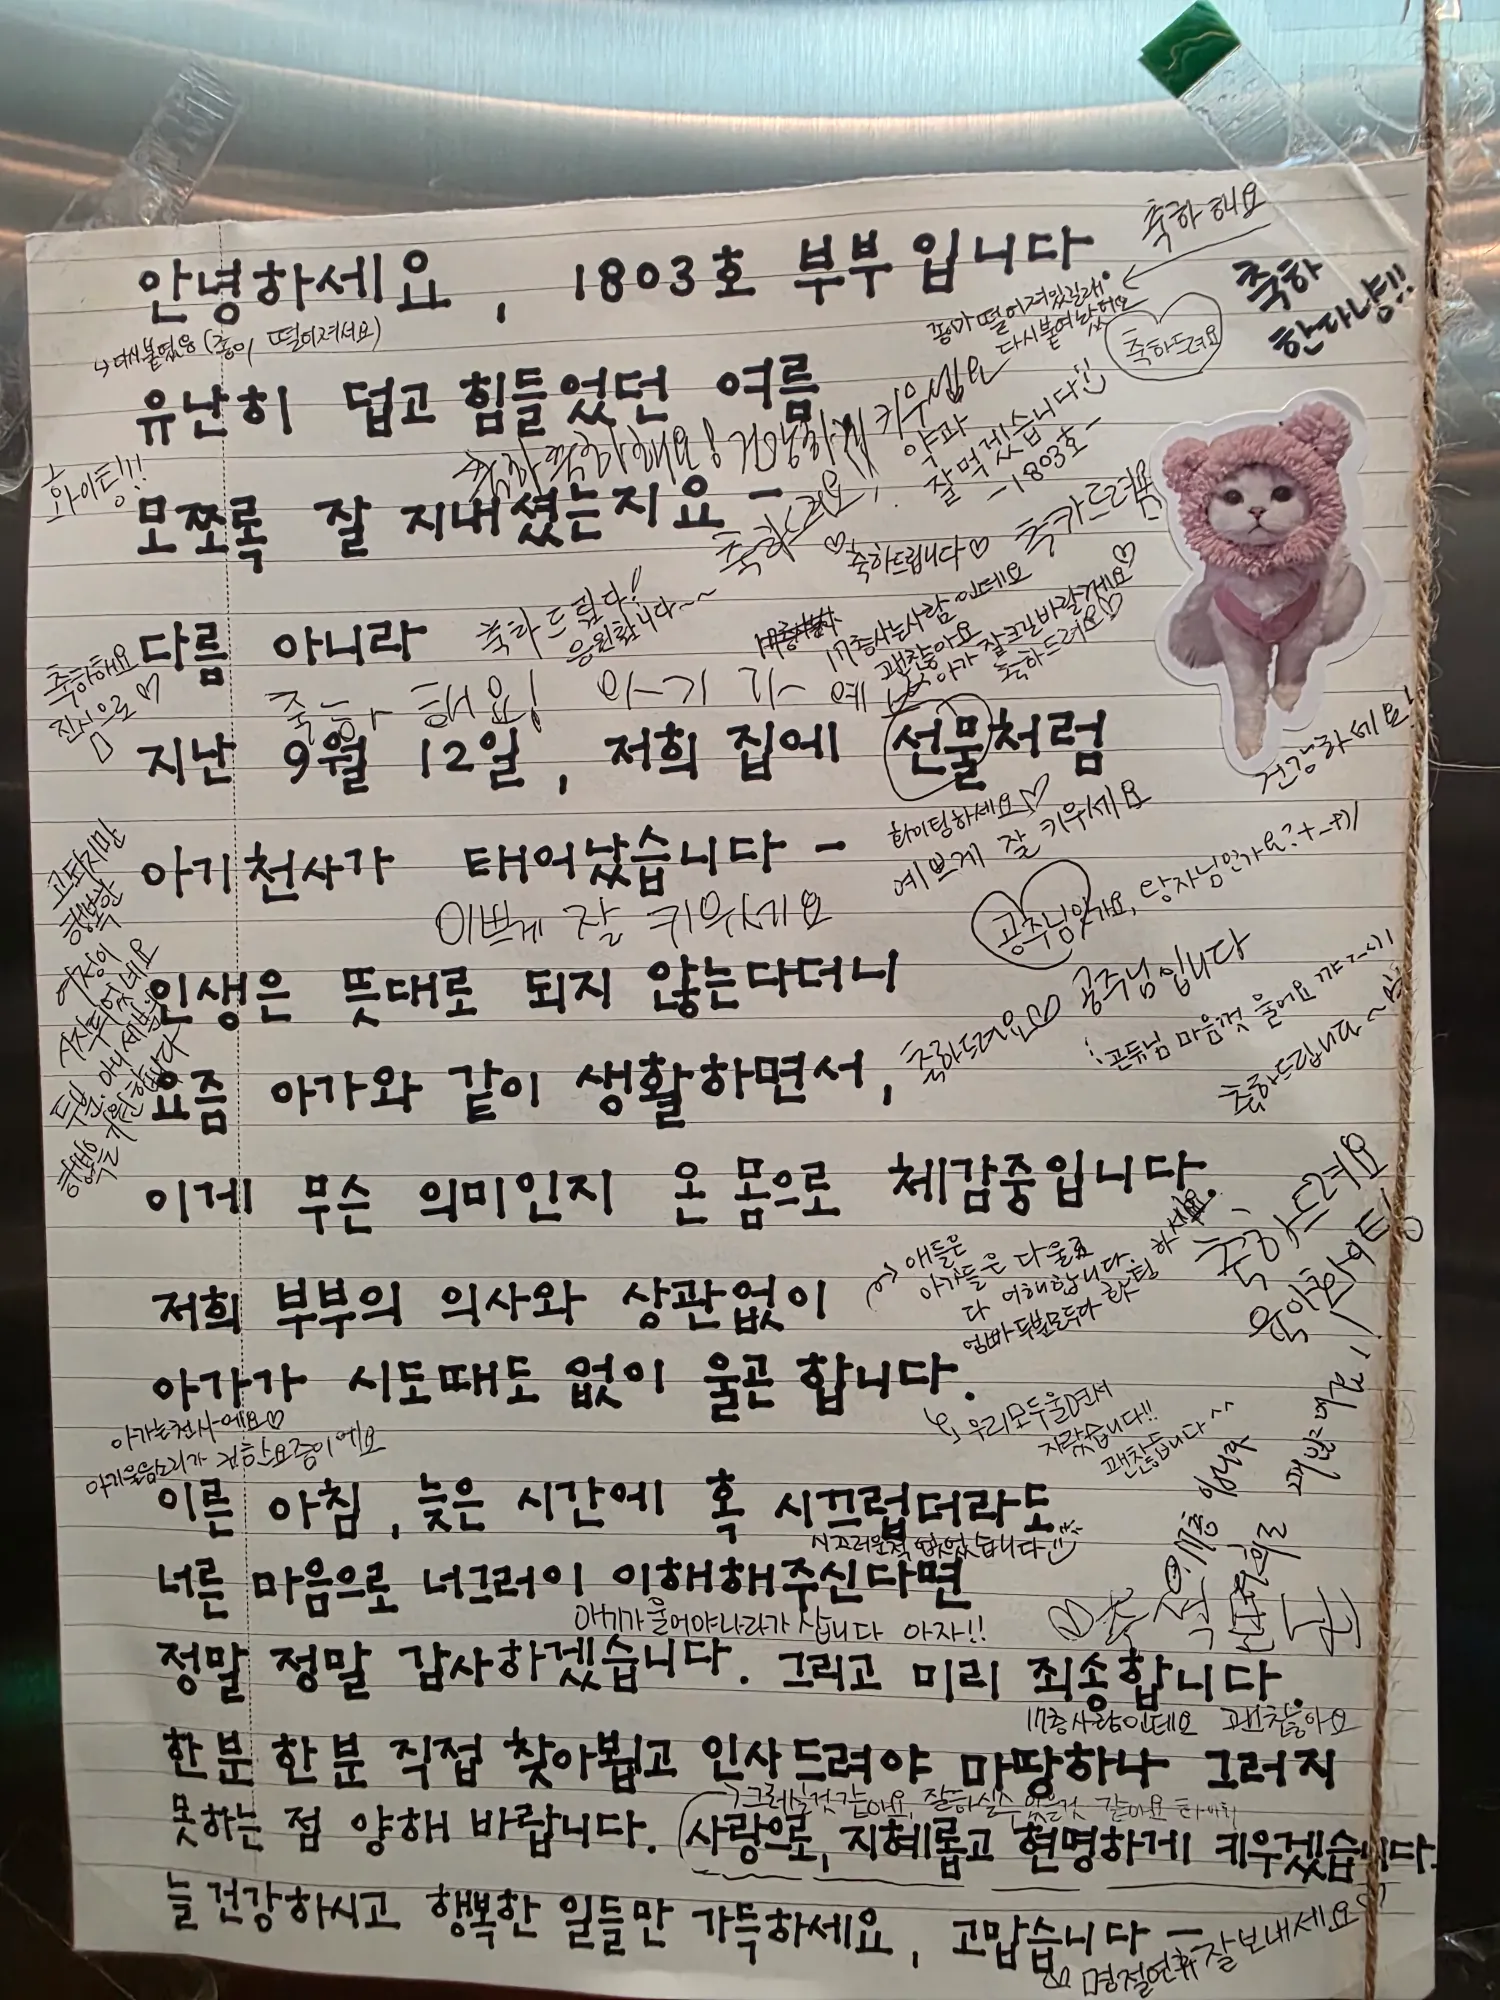 축하해요
안녕하세요, 1803호 부부입니다.
축하
한다냥!!
↳ 다시붙였음 (종이 떨어져서요)
종이가 떨어져있길래
다시붙여놨어요
축하드려요
유난히 덥고 힘들었던 여름
축하축하해요! 건강하게 키우세요
약과
잘먹겠습니다
-1803호-
화이팅!!!
모쪼록 잘 지내셨는지요 -
축하드려요!
♡축하드립니다♡
축하드려요
축하드립니다!
응원합니다~~
17층사는사람인데요
괜찮아요
아가 잘크길바랄게요♡
축하드려요♡
다름 아니라
축하해요
진심으로♡
축하해요! 아기가 예
지난 9월 12일, 저희 집에 선물처럼
건강하세요!
화이팅하세요♡
예쁘게 잘 키우세요
아기천사가 태어났습니다 -
이쁘게 잘 키우세요
공주님인가요, 왕자님인가요?
공주님입니다
고되지만
행복한
여정이
시작되었네요
두분, 아니 세분의
행복을 기원합니다
인생은 뜻대로 되지 않는다더니
공듀님 마음껏 울어요
축하드려요♡
축하드립니다~
요즘 아가와 같이 생활하면서,
이게 무슨 의미인지 온 몸으로 체감중입니다.
축하드려요
육아화이팅
→ 애들은
아가들은 다 울죠
다 이해합니다.
엄빠 두분모두다 화팅 하세요
저희 부부의 의사와 상관없이
아가가 시도때도 없이 울곤 합니다.
↳ 우리모두울면서
자랐습니다!!
괜찮습니다^^
아가는천사예요♡
아기울음소리가 귀한요즘이에요
이른 아침, 늦은 시간에 혹 시끄럽더라도
시끄러운적 없었습니다
너른 마음으로 너그러이 이해해주신다면
아기가울어야나라가 삽니다 아자!!
정말 정말 감사하겠습니다. 그리고 미리 죄송합니다.
17층사람인데요 괜찮아요
한분 한분 직접 찾아뵙고 인사드려야 마땅하나 그러지
그러실것같아요, 잘하실수 있을것 같아요
못하는 점 양해 바랍니다. 사랑으로, 지혜롭고 현명하게 키우겠습니다.
늘 건강하시고 행복한 일들만 가득하세요, 고맙습니다 -
명절연휴 잘보내세요